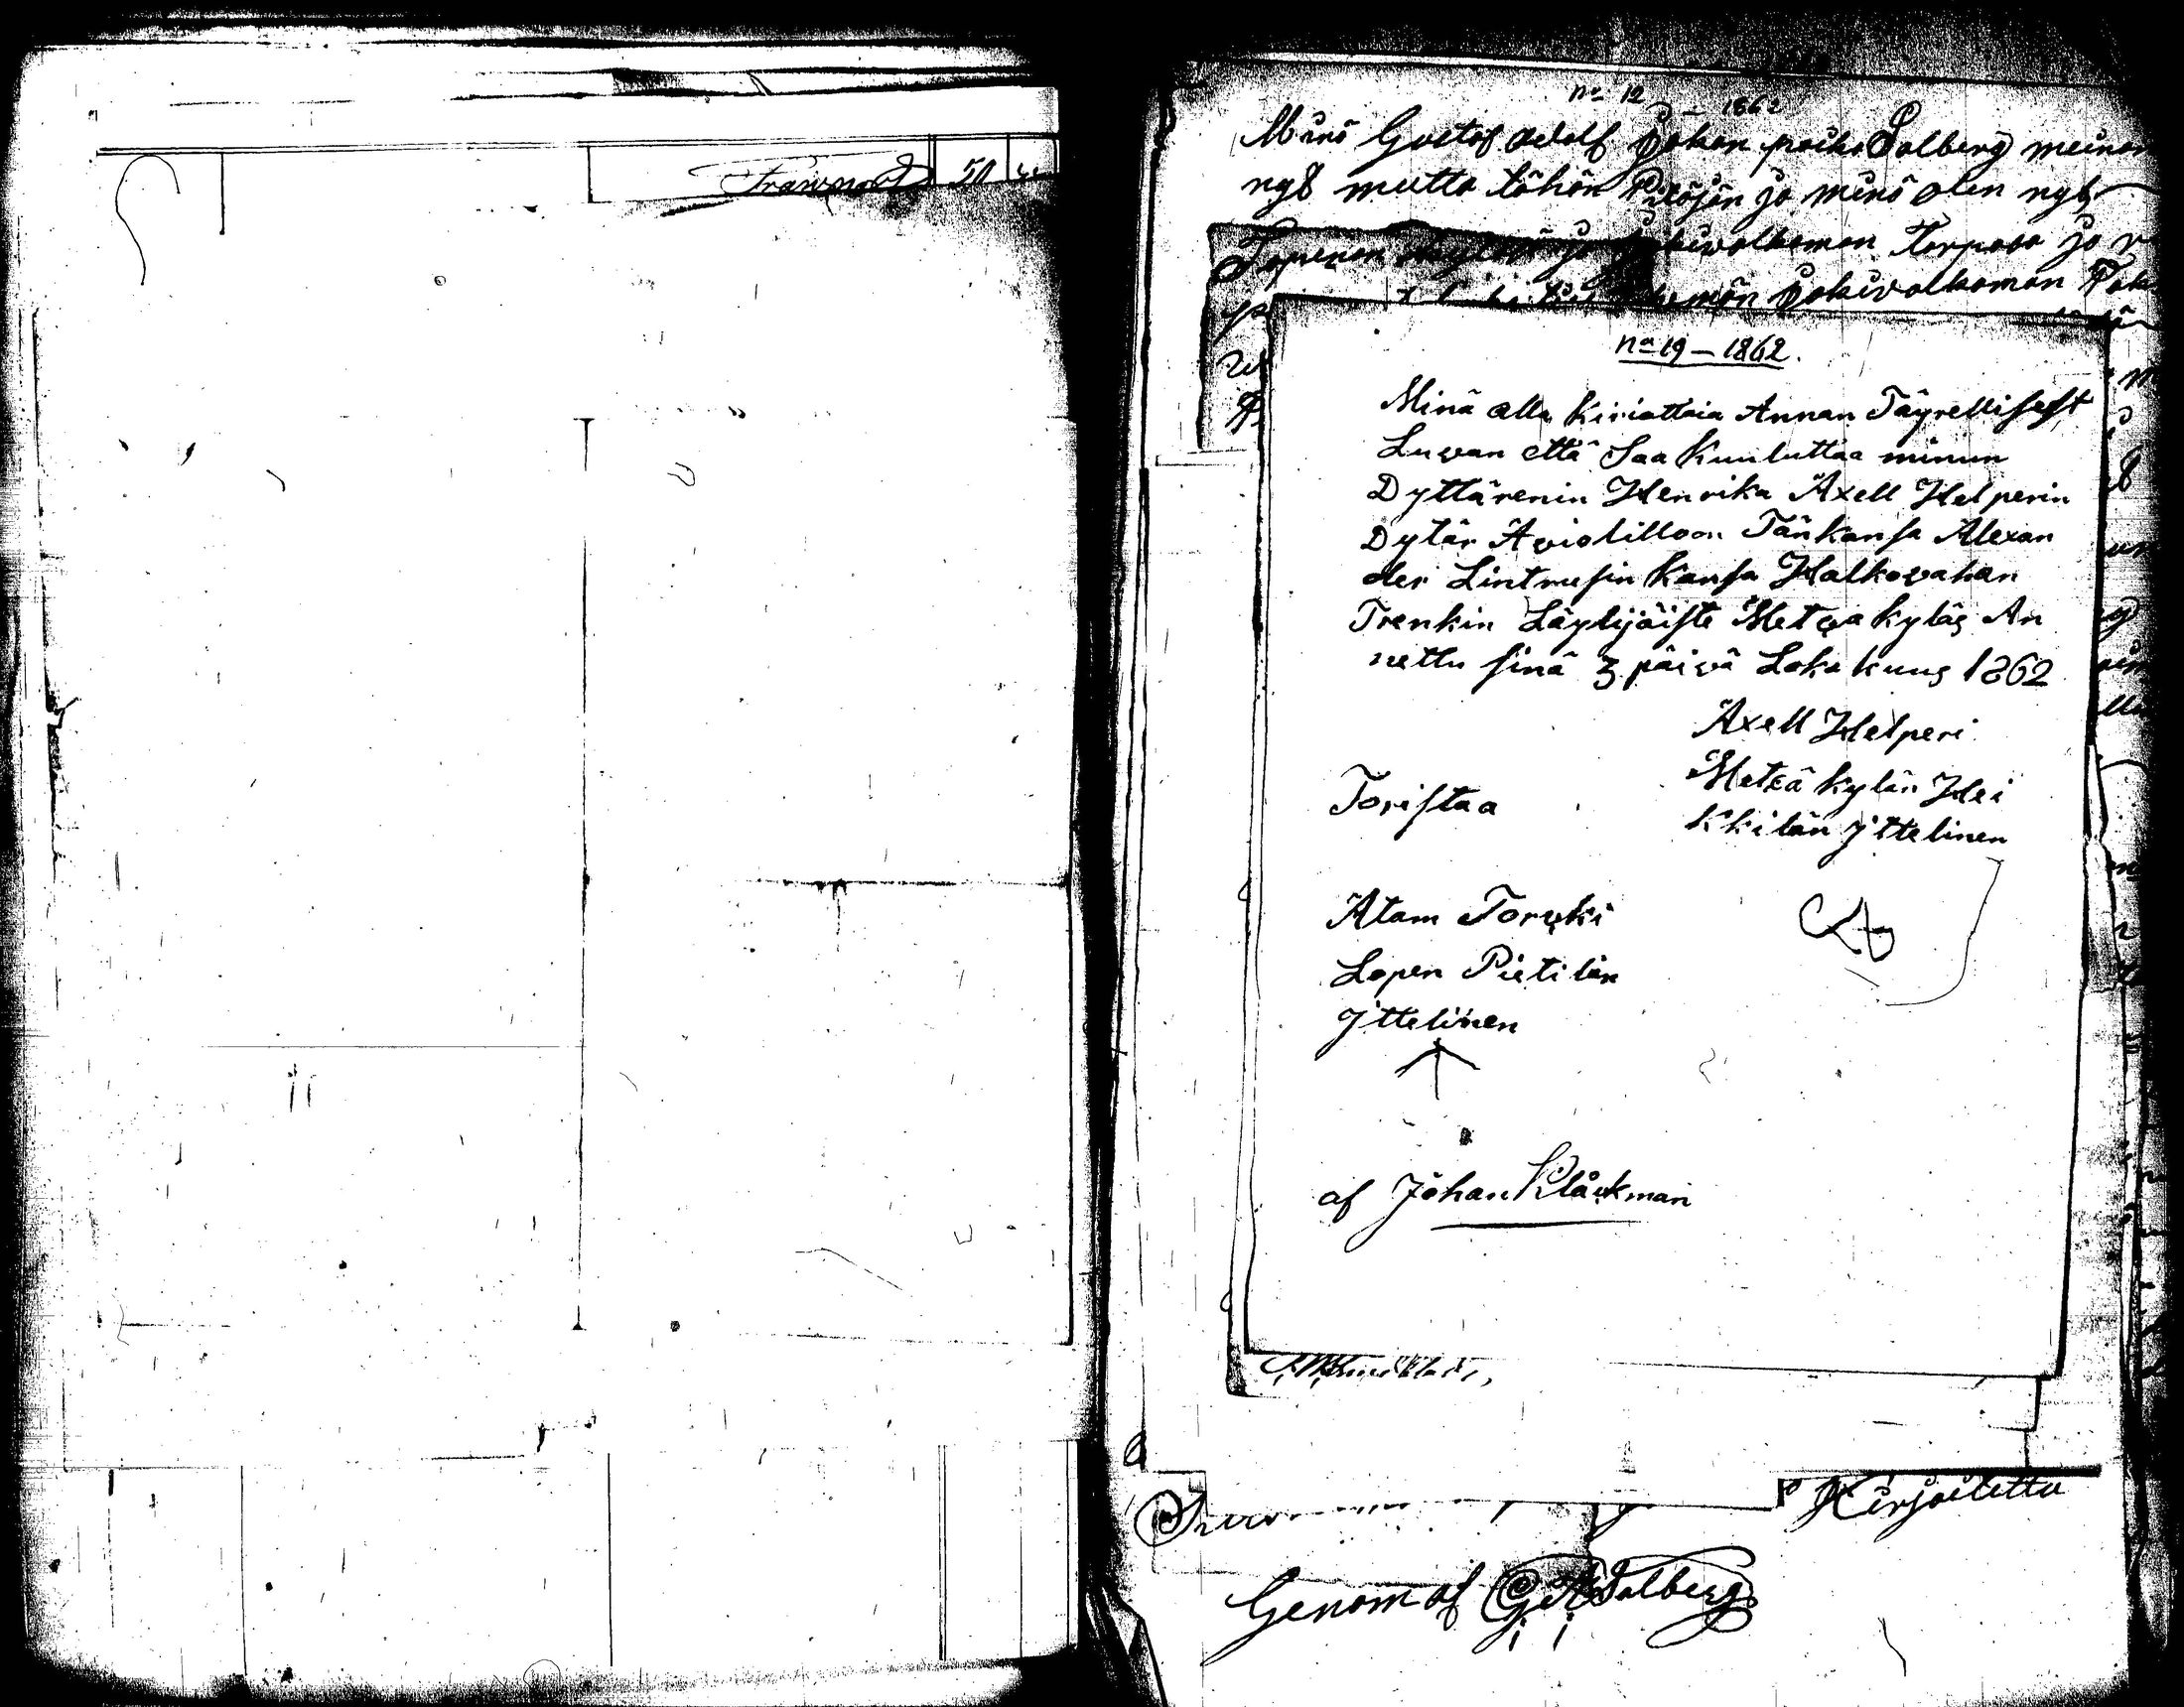 Transport 50
no 12 – 1862
Minä Gustaf Adolf Jokan poika Salberg meinan
nyt mutta tähän Pitäjän ja minä olen nyt
Topenon kylän ja Jokivalkaman Torpasa ja
Jokivalkaman
no 19 – 1862.
Minä alla Kiriattaia Annan Täyrellisest
Luvan että Saa Kuuluttaa minun
Dyttärenin Henrika Axell Helperin
Dytär Aviolilloon Tänkansa Alexan
der Lintrusin Kansa Halkovahan
Trenkin Läylijäiste Metsäkyläs An
nettu sinä 3 päivä Loka kuus 1862
Axell Helperi
Metsä kylän Hei
Kkilän Jttelinen
Toristaa
Atam Torvki
Lopen Pietilän
Jttelinen
af Johan Klåckman
Kirjoitettu
Genom af G A Salberg